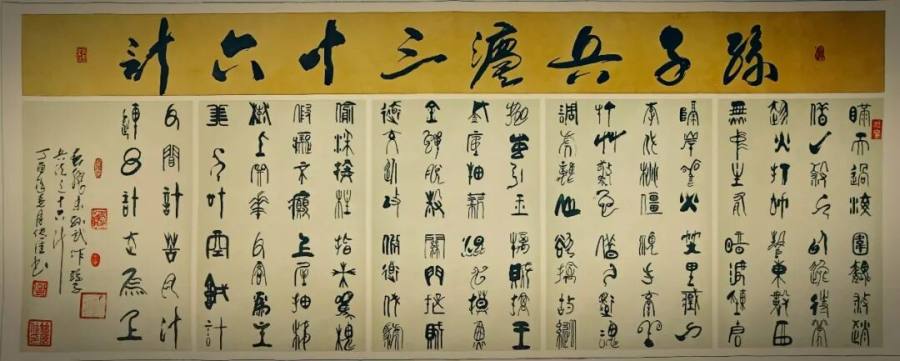 孫子兵灋三十六計
瞞天過海圍魏救趙
借刀殺人以逸待勞
趁火打劫聲東擊西
無中生有暗渡陳倉
隔岸觀火笑裏藏刀
李代桃僵順手牽羊
打草驚蛇借屍還魂
調虎離山欲擒故縱
拋磚引玉擒賊擒王
釜底抽薪混水摸魚
金蟬脫殼關門捉賊
遠交近攻假道伐虢
偷梁換柱指桑罵槐
假癡不癲上屋抽梯
樹上開花反客為主
美人計空城計
反間計苦肉計
連環計走為上
孫武作孫子
兵法三十六計
丁酉年月書